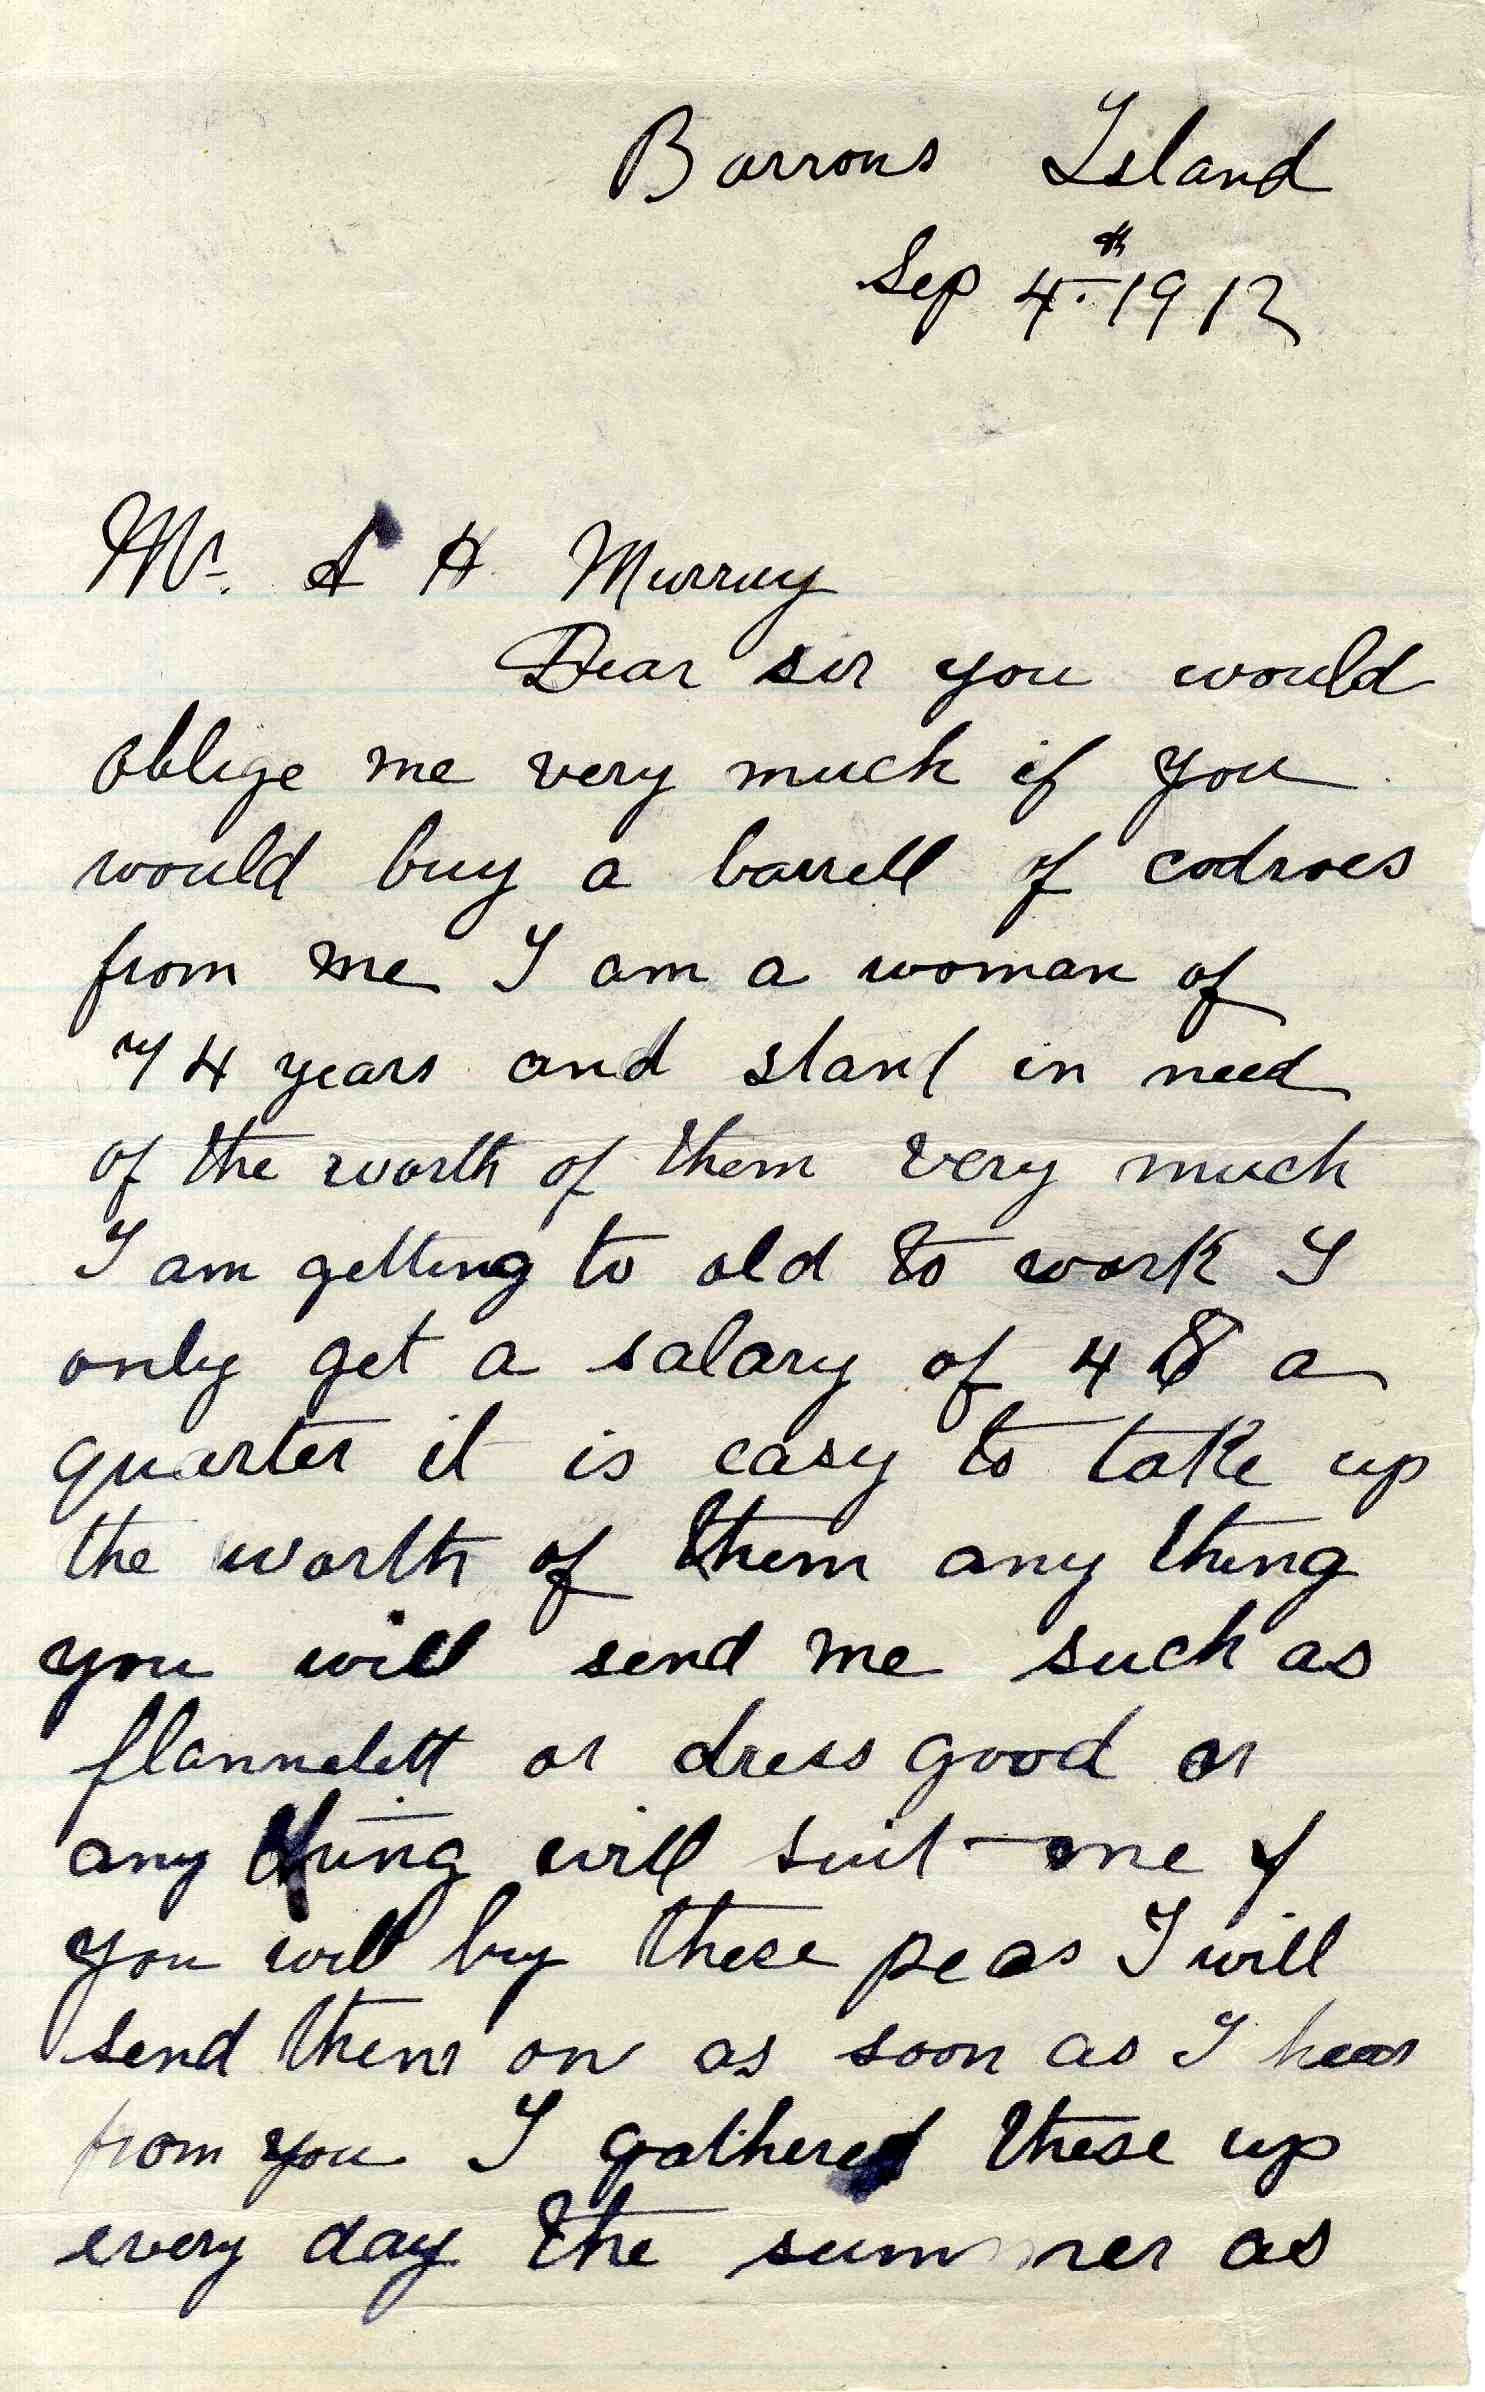 Barrons Island
Sep 4th. 1912
Mr. A H Murray
Dear sir you would
oblige me very much if you
would buy a barrell of codroes
from me I am a woman of
74 years and stant in need
of the worth of them very much
I am getting to old to work I
only get a salary of 4 $ a
quarter it is easy to take up
the worth of them any thing
you will send me such as
flannelett or dress good or
any thing will suit me if
you will by these peas I will
send them on as soon as I hear
from you I gathered these up
every day the summer as